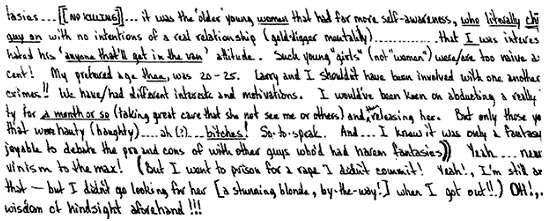 tasies.... [[NO KILLING]].... it was the 'older' young women that had far more self-awareness, who literally chi
guy on with no intentions of a real relationship (gold-digger mentality)............... that I was interes
hated his 'anyone that'll get in the van' attitude. Such young "girls" (not "women") were/are too naive a
cent! My preferred age then, was 20-25. Larry and I shouldn't have been involved with one another
crimes!! We have/had different interests and motivations. I would've been keen on abducting a really
ty for a month or so (taking great care that she not see me or others) and then releasing her. But only those yo
that were hauty (haughty).... ah (?)..... bitches! So-to-speak. And.... I knew it was only a fantasy
joyable to debate the pro and cons of with other guys who'd had harem fantasies)) Yeah.... near
vinism to the max! (But I went to prison for a rape I didn't commit! Yeah!, I'm still or
that — but I didn't go looking for her [a stunning blonde, by-the-way!] when I got out!!.) OH!,.
wisdom of hindsight aforehand!!!